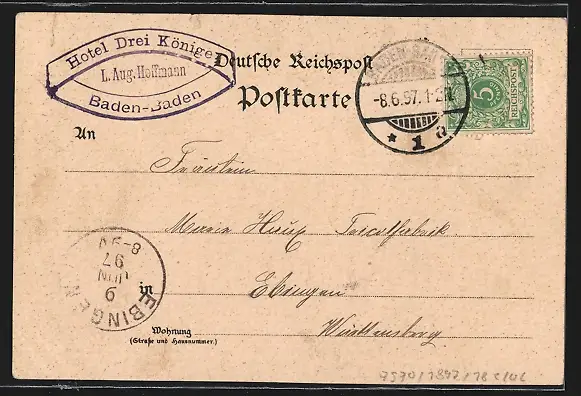 Hotel Drei Könige
L. Aug. Hoffmann
Baden-Baden
Deutsche Reichspost
Postkarte
BADEN-BADEN
-8.6.97.1-2N
* 1 a
REICHSPOST
5
An
Fräulein
Marie Haux Tricotfabrik
in Ebingen
Württemberg
Wohnung
(Straße und Hausnummer.)
EBINGEN
9
JUN
97
8-9V